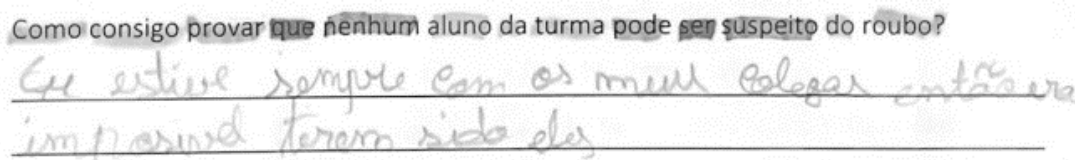 Como consigo provar que nenhum aluno da turma pode ser suspeito do roubo?
Eu estive sempre com os meus colegas então era
imposivel terem sido eles